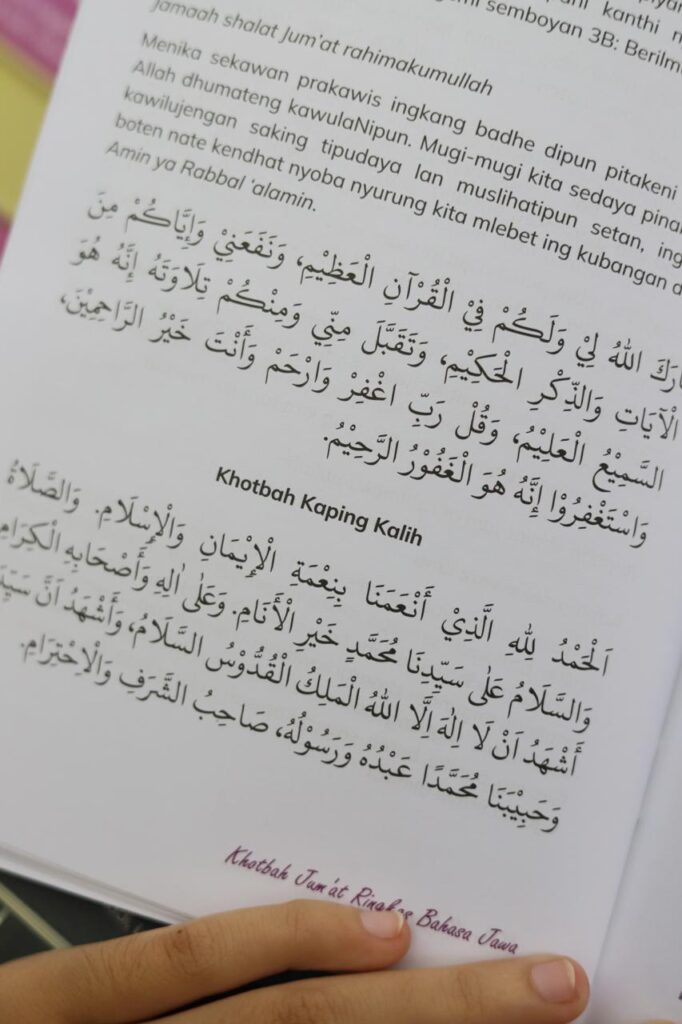 semboyan 3B:
Jamaah shalat Jum'at rahimakumullah
Menika sekawan prakawis ingkang badhe dipun pitakeni
Allah dhumateng kawulaNipun. Mugi-mugi kita sedaya
kawilujengan saking tipudaya lan muslihatipun setan,
boten nate kendhat nyoba nyurung kita mlebet ing kubangan
Amin ya Rabbal 'alamin.
اللهُ لِيْ وَلَكُمْ فِيْ الْقُرْآنِ الْعَظِيْمِ، وَنَفَعَنِيْ وَإِيَّاكُمْ مِنَ
الْآيَاتِ وَالذِّكْرِ الْحَكِيْمِ، وَتَقَبَّلَ مِنِّي وَمِنْكُمْ تِلَاوَتَهُ إِنَّهُ هُوَ
السَّمِيْعُ الْعَلِيْمُ، وَقُلْ رَبِّ اغْفِرْ وَارْحَمْ وَأَنْتَ خَيْرُ الرَّاحِمِيْنَ،
وَاسْتَغْفِرُوْا إِنَّهُ هُوَ الْغَفُوْرُ الرَّحِيْمُ.
Khotbah Kaping Kalih
اَلْحَمْدُ لِلهِ الَّذِيْ أَنْعَمَنَا بِنِعْمَةِ الْإِيْمَانِ وَالْإِسْلَامِ. وَالصَّلَاةُ
وَالسَّلَامُ عَلَى سَيِّدِنَا مُحَمَّدٍ خَيْرِ الْأَنَامِ. وَعَلَى اٰلِهِ وَأَصْحَابِهِ الْكِرَامِ
أَشْهَدُ اَنْ لَا اِلٰهَ اِلَّا اللهُ الْمَلِكُ الْقُدُّوْسُ السَّلَامُ، وَأَشْهَدُ اَنَّ
وَحَبِيْبَنَا مُحَمَّدًا عَبْدُهُ وَرَسُوْلُهُ، صَاحِبُ الشَّرَفِ وَالْاِحْتِرَامِ.
Khotbah Jum'at Ringkas Bahasa Jawa